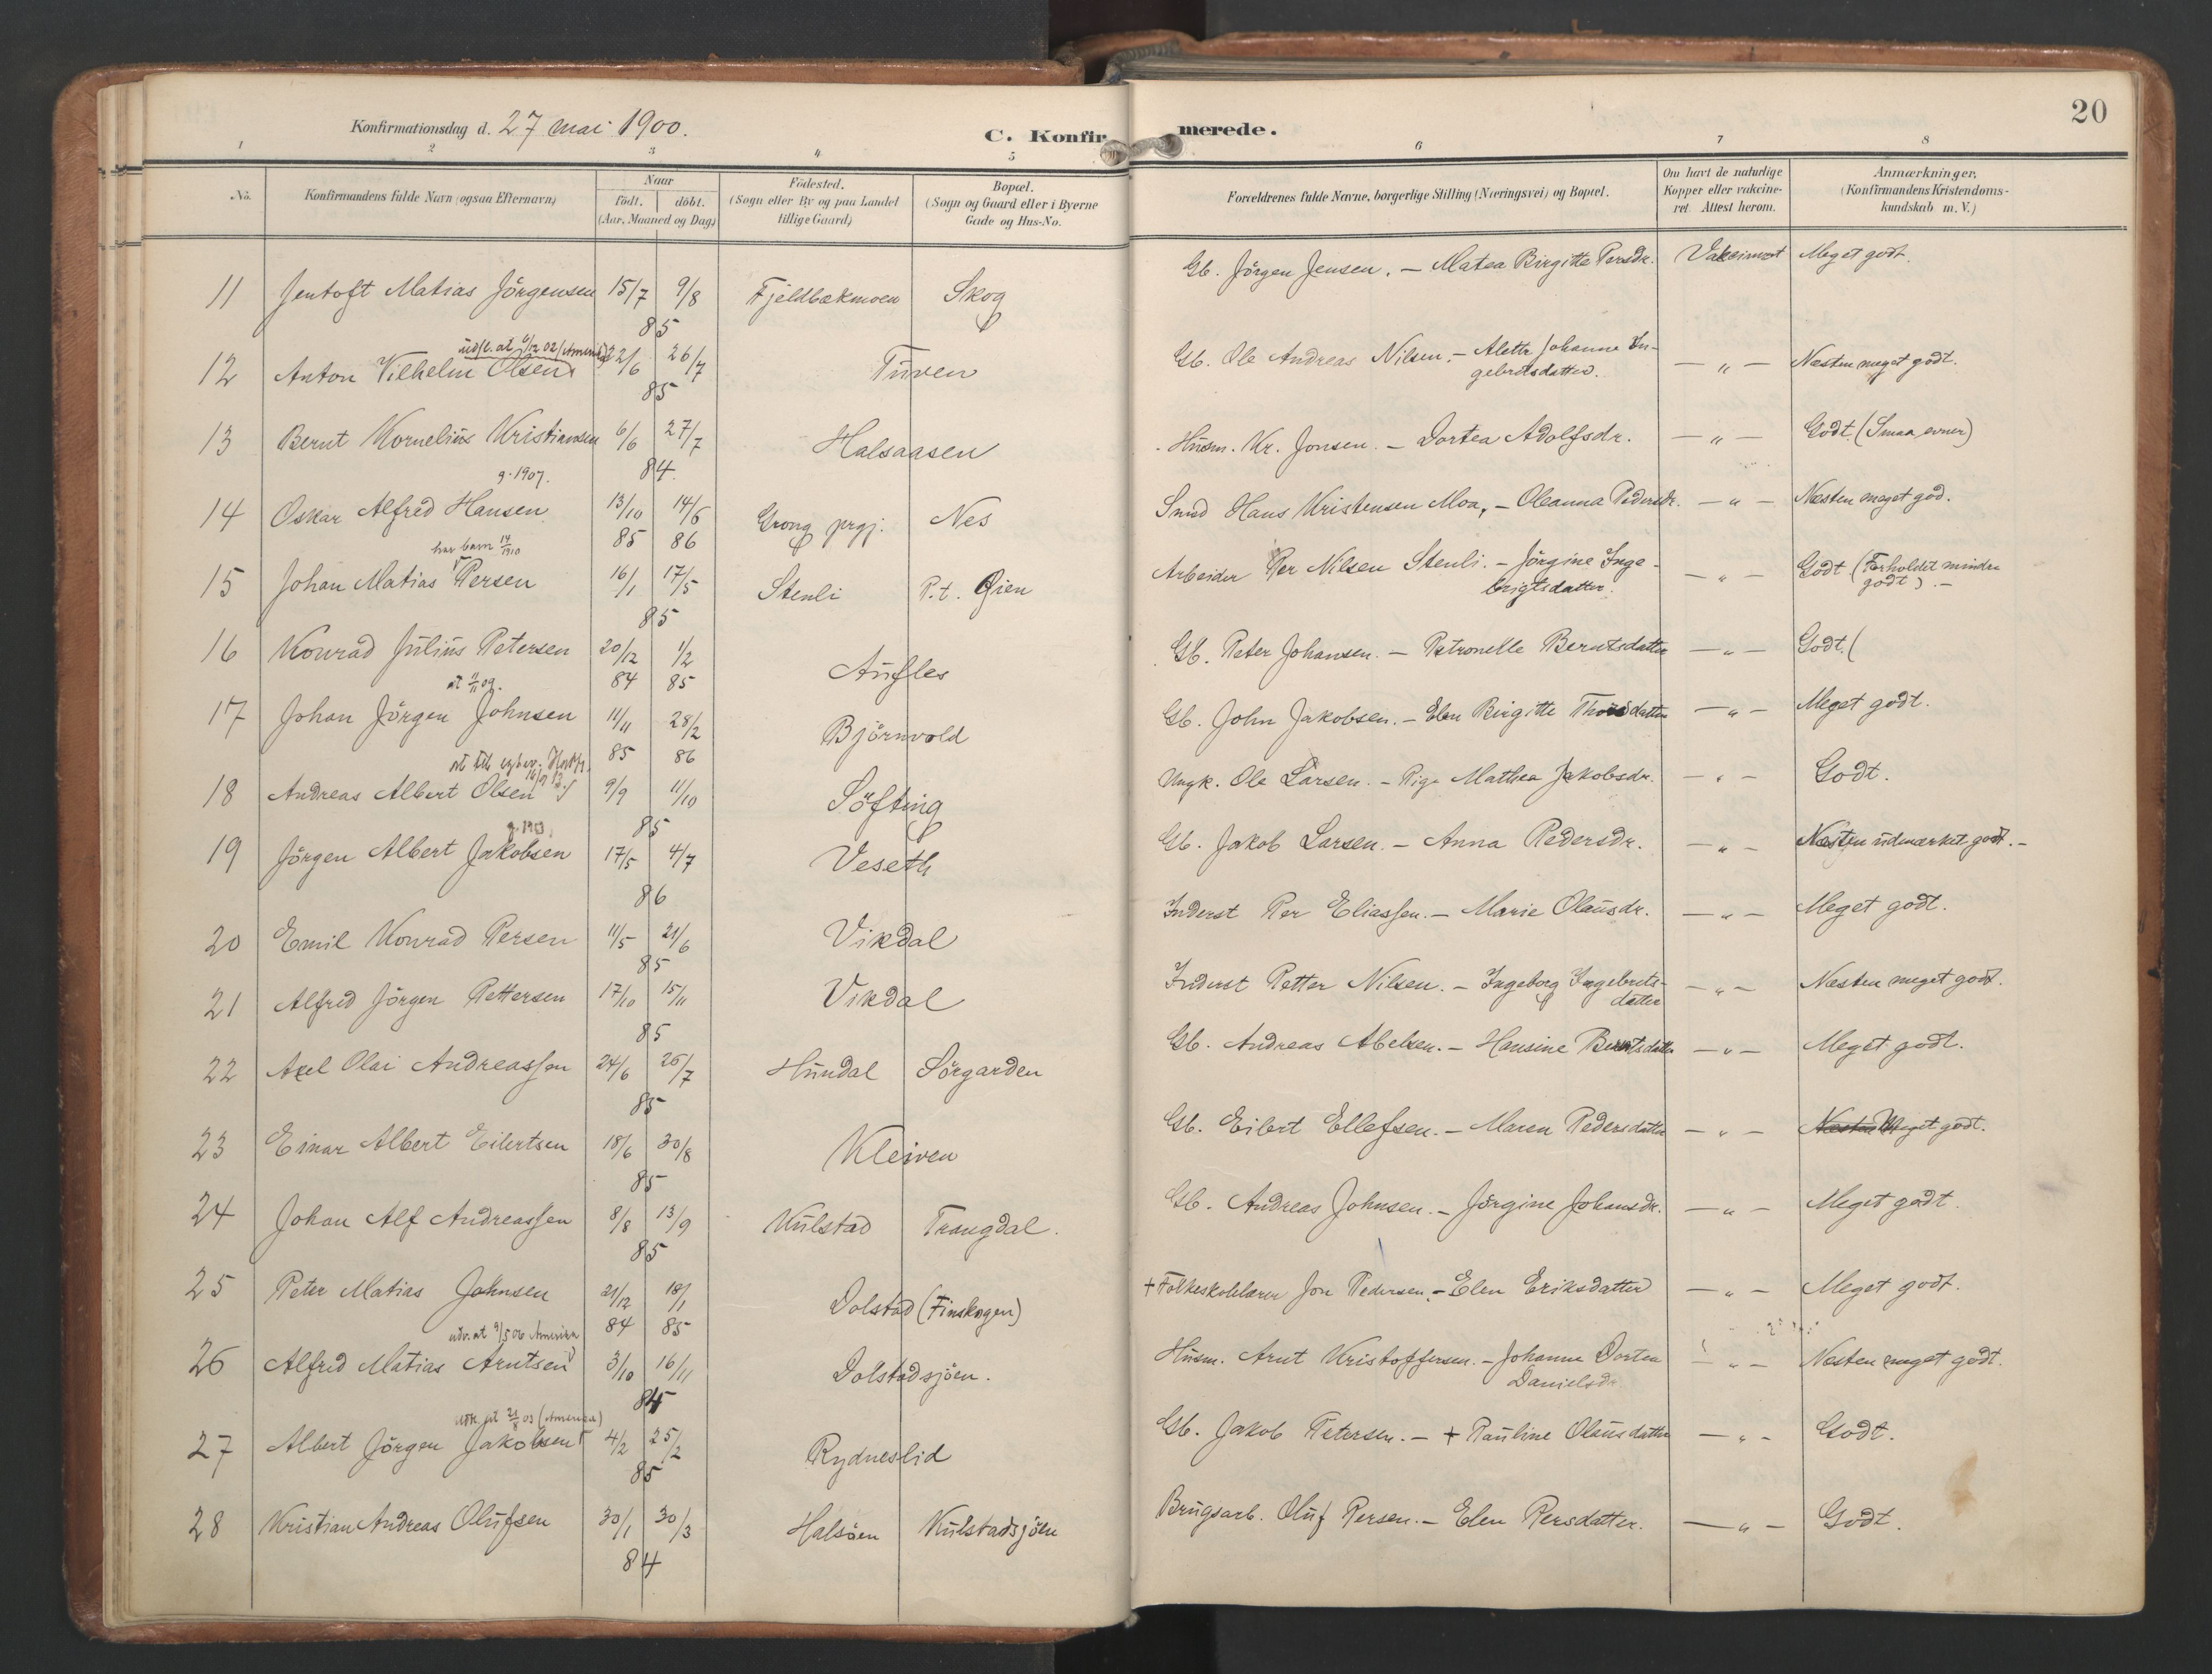 20
Konfirmationsdag d. 27 mai 1900.
C. Konfirmerede.
1 2 3 4 5 6 7 8
No. Konfirmandens fulde Navn (ogsaa Efternavn) Naar födt. döbt. (Aar, Maaned og Dag) Födested. (Sogn eller By og paa Landet tillige Gaard) Bopæl. (Sogn og Gaard eller i Byerne Gade og Hus-No. Forældrenes fulde Navne, borgerlige Stilling (Næringsvei) og Bopæl. Om havt de naturlige Kopper eller vakcineret. Attest herom. Anmærkninger, (Konfirmandens Kristendomskundskab m. V.)
11 Jentoft Matias Jörgensen 15/7 9/8 85 Fjeldbækmoen Skog Gb. Jörgen Jensen. – Matea Birgitte Persdr. Vakcinert Meget godt.
udfl. at 6/12 02 (Amerika)
12 Anton Vilhelm Olsen 22/6 26/7 85 Turen Gb. Ole Andreas Nilsen. – Alette Johanne Ingebretsdatter. — „ — Næsten meget godt.
13 Bernt Kornelius Kristiansen 6/6 27/7 84. Halsaasen Husm. Kr. Jonsen. – Dortea Adolfsdr. — „ — Godt. (Smaa evner)
g. 1907.
14 Oskar Alfred Hansen 13/10 85 14/6 86 Grong prgj. Nes Smed Hans Kristensen Moa, – Oleanna Pedersdr. — „ — Næsten meget god.
har barn 14/1910
15 Johan Matias Persen 16/1 17/5 85 Stenli P.t. Öien Arbeider Per Nilsen Stenli. – Jörgine Ingebrigtsdatter. — „ — Godt (Forholdet mindre godt). –
16 Konrad Julius Petersen 20/12 84 1/2 85 Aufles Gb. Peter Johansen. – Petronelle Berntsdatter — „ — Godt. (
17 Johan Jörgen Johnsen 11/11 85 28/2 86 Björnvold Gb. John Jakobsen. – Elen Birgitte Thorsdatter — „ — Meget godt.
18 Andreas Albert Olsen 9/9 11/10 85 Söfting Ungk. Ole Larsen. – Pige Mathea Jakobsdr. — „ — Godt.
g. 1913.
19 Jörgen Albert Jakobsen 17/5 4/7 86 Veseth Gb. Jakob Larsen. – Anna Pedersdr. — „ — Næsten udmærket godt. –
20 Emil Konrad Persen 11/5 21/6 85 Vikdal Inderst Per Eliassen. – Marie Olausdr. — „ — Meget godt.
21 Alfred Jörgen Pettersen 17/10 15/11 85 Vikdal Inderst Petter Nilsen. – Ingeborg Ingebretsdatter — „ — Næsten meget godt.
22 Axel Olai Andreassen 24/6 26/7 85 Hundal Sörgarden Gb. Andreas Abelsen. – Hansine Berntsdatter — „ — Meget godt.
23 Einar Albert Eilertsen 18/6 30/8 85 Kleiven Gb. Eilert Ellefsen. – Maren Pedersdatter — „ — Næsten Meget godt.
24 Johan Alf Andreassen 8/8 13/9 85 Kulstad Trangdal. Gb. Andreas Johnsen. – Jörgine Johansdr. — „ — Meget godt.
25 Peter Matias Johnsen 21/12 84 18/1 85 Dolstad (Finskogen) + Folkeskolelærer Jon Pedersen. – Elen Eriksdatter — „ — Meget godt.
udv. at 9/5 06 Amerika
26 Alfred Matias Arntsen 3/10 16/11 84 Dolstadsjöen. Husm. Arnt Kristoffersen. – Johanne Dortea Danielsdr. — „ — Næsten meget godt.
at 21/8 03 (Amerika)
27 Albert Jörgen Jakobsen 4/2 25/2 85 Rydneslid Gb. Jakob Petersen. – + Pauline Olausdatter — „ — Godt.
28 Kristian Andreas Olufsen 30/1 30/3 84 Halsöen Kulstadsjöen Brugsarb. Oluf Persen. – Elen Persdatter. — „ — Godt.